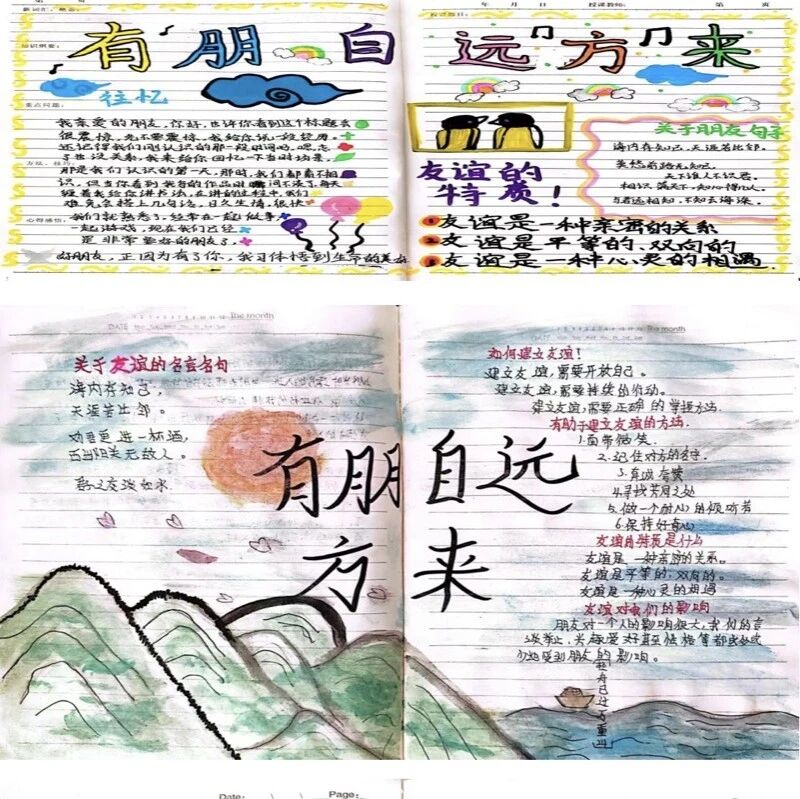 年 月 日 授课教师： 第 页
有朋自远方来
往忆
重点问题：
我亲爱的朋友，你好，也许你看到这个标题会
很震惊，先不要震惊，我给你讲一段经历。
还记得我们刚认识的那一段时间吗，吧忘
了也没关系，我来给你回忆一下当时场景，
那是我们认识的第一天，那时，我们都素不相
识，但当你看到我
难免会搭上几句话，日久生情，很快
我们就熟悉了，经常在一起做事
一起游戏，现在我们已经
是非常要好的朋友了，
好朋友，正因为有了你，我才体悟到生命的美好
心得感悟：
友谊的
特质！
关于朋友句子
海内存知己，天涯若比邻。
莫愁前路无知己，
天下谁人不识君。
相识满天下，知心能几人。
与君远相知，不知云海深。
友谊是一种亲密的关系
友谊是平等的、双向的
友谊是一种心灵的相遇.
DATE
The month
关于友谊的名言名句
海内存知己，
天涯若比邻。
劝君更进一杯酒，
西出阳关无故人。
君子之交淡如水
有朋自远
方来
The month
如何建立友谊！
建立友谊，需要开放自己。
建立友谊，需要持续的行动。
建立友谊，需要正确的掌握方法.
有助于建立友谊的方法.
1.面带微笑.
2.记住对方的名字.
3.真诚夸赞
4.寻找共同之处
5.做一个耐心的倾听者
6.保持好奇心
友谊的特质是什么
友谊是一种亲密的关系。
友谊是平等的，双向的。
友谊是一种心灵的相遇
友谊对我们的影响
朋友对一个人的影响很大，我们的言
谈举止，兴趣爱好甚至性格等都或多或
少地受到朋友的影响。
轻舟已过万重山
Date:
Page: